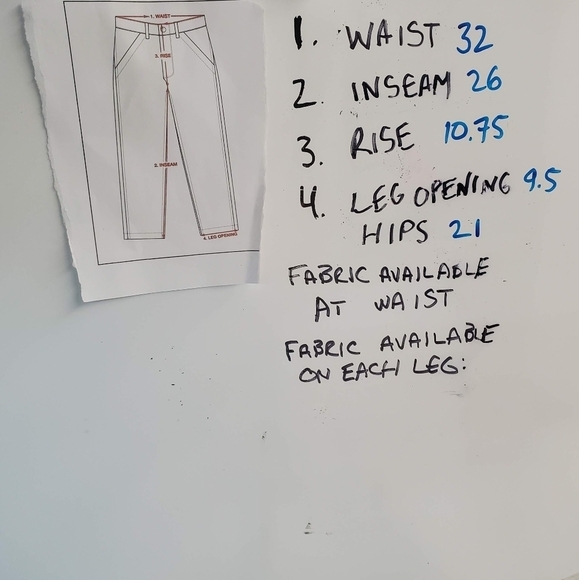 1. WAIST
3. RISE
2. INSEAM
4. LEG OPENING
1. WAIST 32
2. INSEAM 26
3. RISE 10.75
4. LEG OPENING 9.5
HIPS 21
FABRIC AVAILABLE
AT WAIST
FABRIC AVAILABLE
ON EACH LEG: